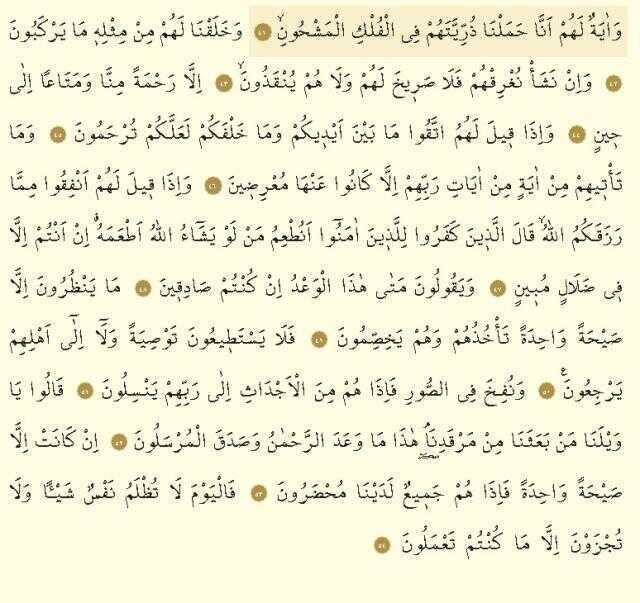 وَاٰيَةٌ لَهُمْ اَنَّا حَمَلْنَا ذُرِّيَّتَهُمْ فِى الْفُلْكِ الْمَشْحُونِۙ ٤١ وَخَلَقْنَا لَهُمْ مِنْ مِثْلِه۪ مَا يَرْكَبُونَ
٤٢ وَاِنْ نَشَأْ نُغْرِقْهُمْ فَلَا صَر۪يخَ لَهُمْ وَلَا هُمْ يُنْقَذُونَۙ ٤٣ اِلَّا رَحْمَةً مِنَّا وَمَتَاعًا اِلٰى
ح۪ينٍ ٤٤ وَاِذَا ق۪يلَ لَهُمُ اتَّقُوا مَا بَيْنَ اَيْد۪يكُمْ وَمَا خَلْفَكُمْ لَعَلَّكُمْ تُرْحَمُونَ ٤٥ وَمَا
تَأْت۪يهِمْ مِنْ اٰيَةٍ مِنْ اٰيَاتِ رَبِّهِمْ اِلَّا كَانُوا عَنْهَا مُعْرِض۪ينَ ٤٦ وَاِذَا ق۪يلَ لَهُمْ اَنْفِقُوا مِمَّا
رَزَقَكُمُ اللّٰهُۙ قَالَ الَّذ۪ينَ كَفَرُوا لِلَّذ۪ينَ اٰمَنُٓوا اَنُطْعِمُ مَنْ لَوْ يَشَٓاءُ اللّٰهُ اَطْعَمَهُۗ اِنْ اَنْتُمْ اِلَّا
ف۪ى ضَلَالٍ مُب۪ينٍ ٤٧ وَيَقُولُونَ مَتٰى هٰذَا الْوَعْدُ اِنْ كُنْتُمْ صَادِق۪ينَ ٤٨ مَا يَنْظُرُونَ اِلَّا
صَيْحَةً وَاحِدَةً تَأْخُذُهُمْ وَهُمْ يَخِصِّمُونَ ٤٩ فَلَا يَسْتَط۪يعُونَ تَوْصِيَةً وَلَٓا اِلٰٓى اَهْلِهِمْ
يَرْجِعُونَ۟ ٥٠ وَنُفِخَ فِى الصُّورِ فَاِذَا هُمْ مِنَ الْاَجْدَاثِ اِلٰى رَبِّهِمْ يَنْسِلُونَ ٥١ قَالُوا يَا
وَيْلَنَا مَنْ بَعَثَنَا مِنْ مَرْقَدِنَاۢ هٰذَا مَا وَعَدَ الرَّحْمٰنُ وَصَدَقَ الْمُرْسَلُونَ ٥٢ اِنْ كَانَتْ اِلَّا
صَيْحَةً وَاحِدَةً فَاِذَا هُمْ جَم۪يعٌ لَدَيْنَا مُحْضَرُونَ ٥٣ فَالْيَوْمَ لَا تُظْلَمُ نَفْسٌ شَيْـًٔا وَلَا
تُجْزَوْنَ اِلَّا مَا كُنْتُمْ تَعْمَلُونَ ٥٤